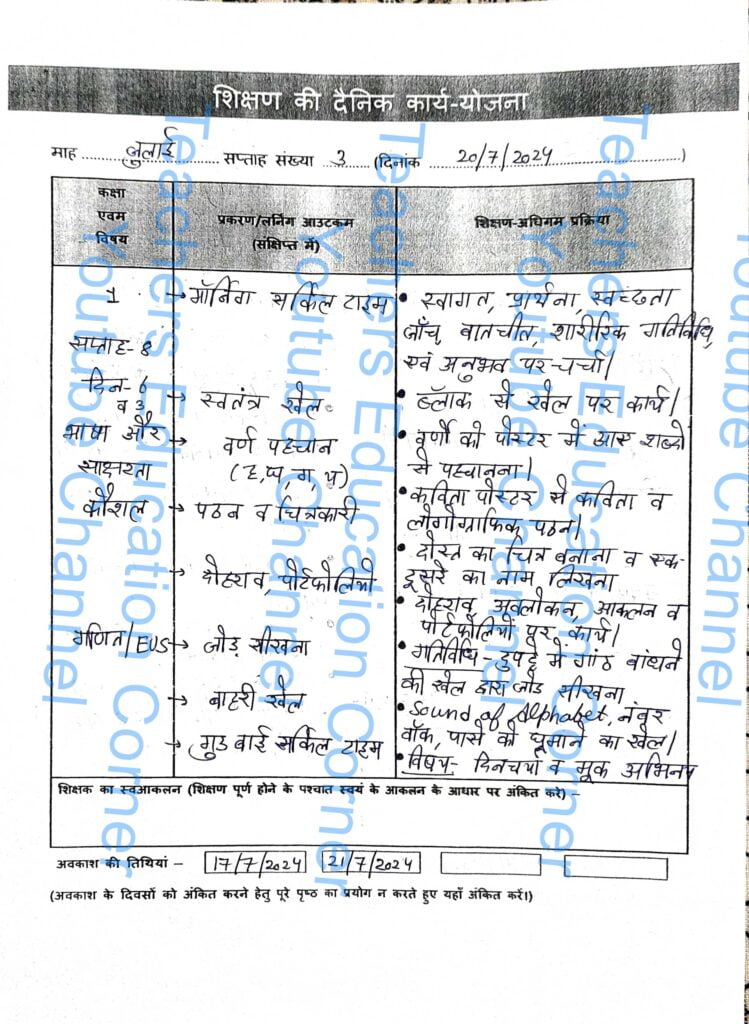 शिक्षण की दैनिक कार्य-योजना
माह ........ जुलाई ........ सप्ताह संख्या .. 3 .. (दिनांक ...... 20/7/2024 ......)
कक्षा
एवम
विषय
प्रकरण/लर्निंग आउटकम
(संक्षिप्त में)
शिक्षण-अधिगम प्रक्रिया
1
सप्ताह-8
दिन-6
व 3
भाषा और
साक्षरता
कौशल
गणित/EVS
→ मॉर्निंग सर्किल टाइम
→ स्वतंत्र खेल
→ वर्ण पहचान
→ पठन व चित्रकारी
→ दोहराव, पोर्टफोलियो
→ जोड़ सीखना
→ बाहरी खेल
→ गुड बाई सर्किल टाइम
• स्वागत, प्रार्थना, स्वच्छता
जाँच, बातचीत, शारीरिक गतिविधि,
एवं अनुभव पर चर्चा।
• ब्लॉक से खेल पर कार्य।
• वर्णों को पोस्टर में आस शब्दों
से पहचानना।
• कविता पोस्टर से कविता व
लोगोग्राफिक पठन।
• दोस्त का चित्र बनाना व एक-
दूसरे का नाम लिखना
• दोहराव, अवलोकन, आकलन व
पोर्टफोलियो पर कार्य।
• गतिविधि - दुपट्टे में गांठ बांधने
की खेल द्वारा जोड सीखना
• Sound of Alphabet, नंबर
वॉक, पासे को घूमाने का खेल।
• विषय- दिनचर्या व मूक अभिनय
शिक्षक का स्वआकलन (शिक्षण पूर्ण होने के पश्चात स्वयं के आकलन के आधार पर अंकित करे) -
अवकाश की तिथियां - 17/7/2024 21/7/2024
(अवकाश के दिवसों को अंकित करने हेतु पूरे पृष्ठ का प्रयोग न करते हुए यहाँ अंकित करें।)
Teachers Education Corner
Youtube Channel
Teachers Education Corner
Youtube Channel
Teachers Education Corner
Youtube Channel